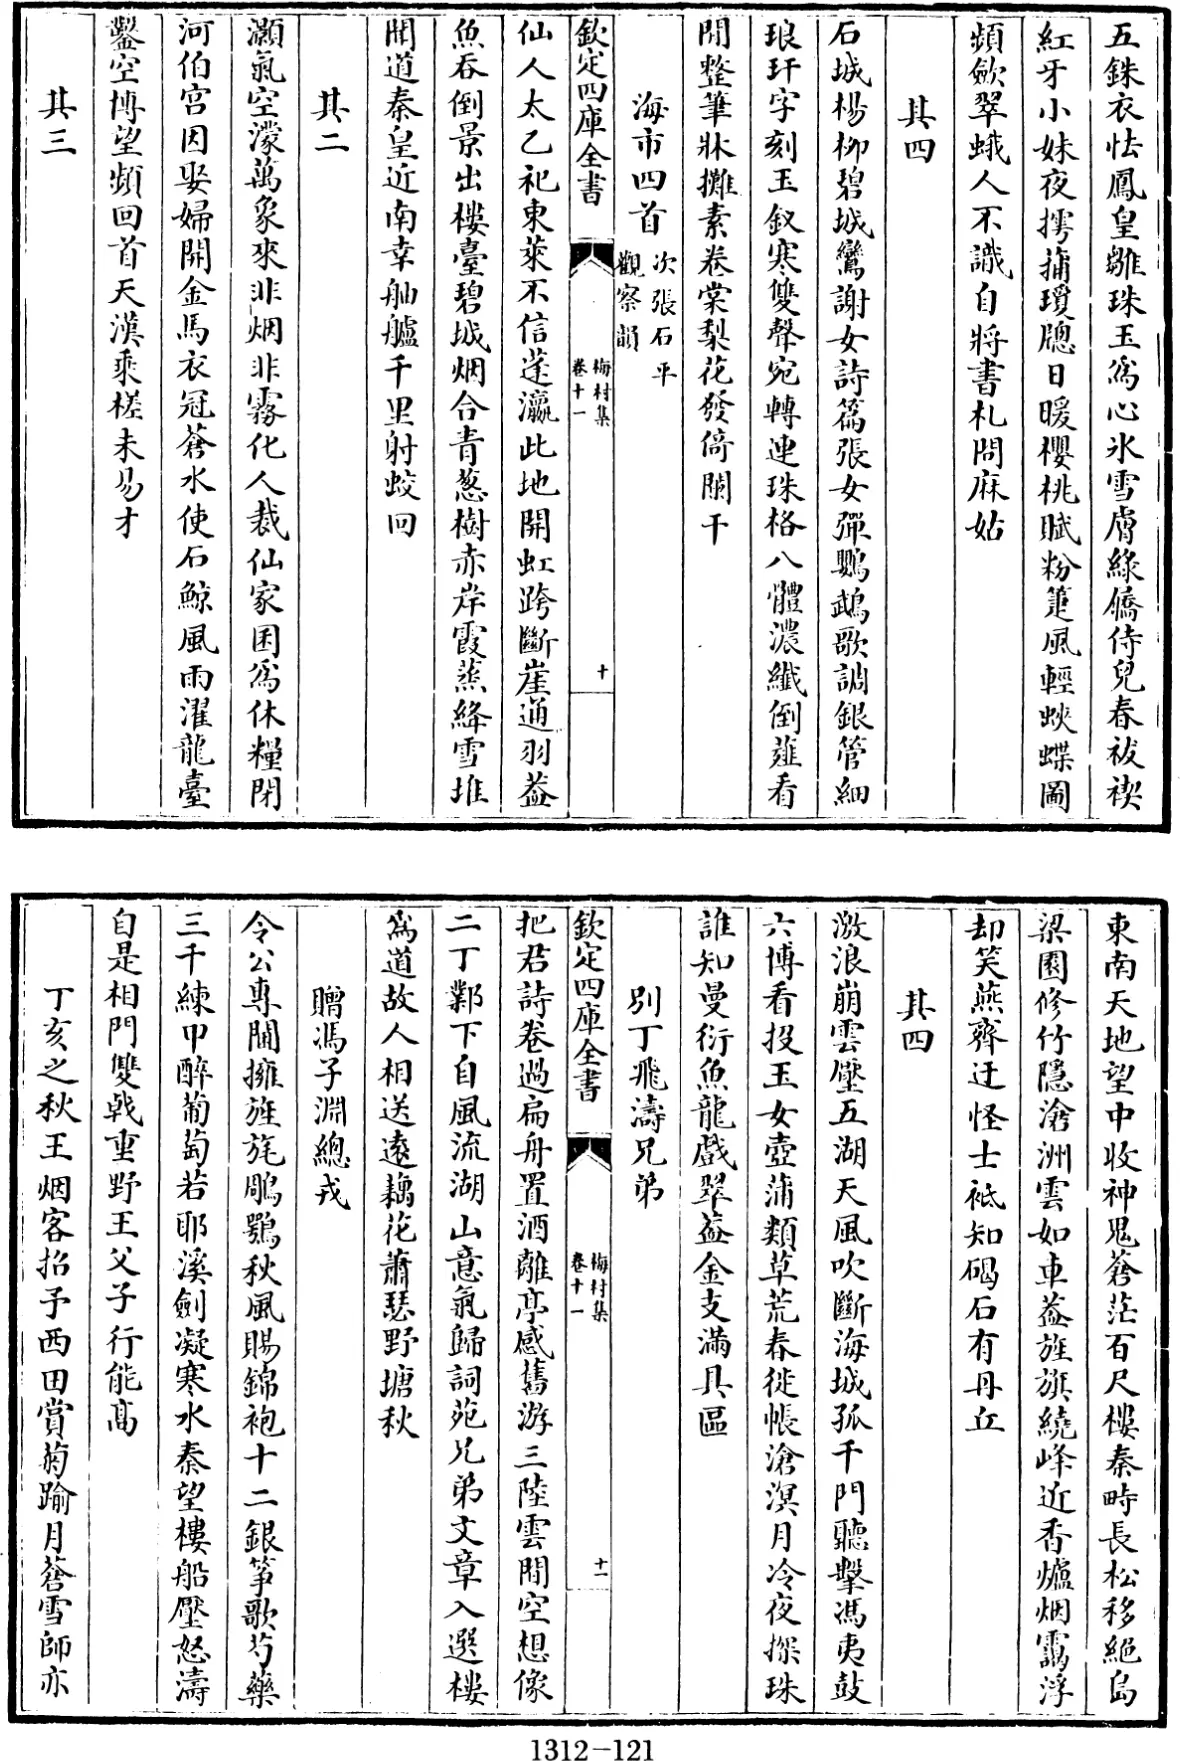 五銖衣怯鳳皇雛珠玉為心氷雪膚綠僑侍兒春祓禊
紅牙小妹夜摴蒱瓊牕日暖櫻桃賦粉箑風輕蛺蝶圖
頻歛翠蛾人不識自將書札問麻姑
其四
石城楊栁碧城鸞謝女詩篇張女彈鸚鵡歌調銀管細
琅玕字刻玉釵寒雙聲宛轉連珠格八體濃纖倒薤看
閒整筆牀攤素卷棠梨花發倚闌干
海市四首次張石平
觀察韻
欽定四庫全書
梅村集
卷十一
十
仙人太乙祀東萊不信蓬瀛此地開虹跨斷崖通羽葢
魚吞倒景出樓臺碧城烟合青葱樹赤岸霞蒸絳雪堆
聞道秦皇近南幸舳艫千里射蛟回
其二
灝氣空濛萬象來非烟非霧化人裁仙家困為休糧閉
河伯宮因娶婦開金馬衣冠蒼水使石鯨風雨濯龍臺
鑿空博望頻回首天漢乘槎未易才
其三
東南天地望中收神鬼蒼茫百尺樓秦畤長松移絶島
梁園修竹隱滄洲雲如車葢旌旗繞峰近香爐烟靄浮
却笑燕齊迂怪士祗知碣石有丹丘
其四
激浪崩雲壓五湖天風吹斷海城孤千門聽擊馮夷鼓
六博看投玉女壺蒲類草荒春徙帳滄溟月冷夜探珠
誰知曼衍魚龍戲翠葢金支滿具區
別丁飛濤兄弟
欽定四庫全書
梅村集
卷十一
十一
把君詩卷過扁舟置酒離亭感舊游三陸雲間空想像
二丁鄴下自風流湖山意氣歸詞苑兄弟文章入選樓
為道故人相送遠藕花蕭瑟野塘秋
贈馮子淵總戎
令公專閫擁旌旄鵰鶚秋風賜錦袍十二銀箏歌芍藥
三千練甲醉葡萄若耶溪劍凝寒水秦望樓船壓怒濤
自是相門雙戟重野王父子行能高
丁亥之秋王烟客招予西田賞菊踰月蒼雪師亦
1312-121